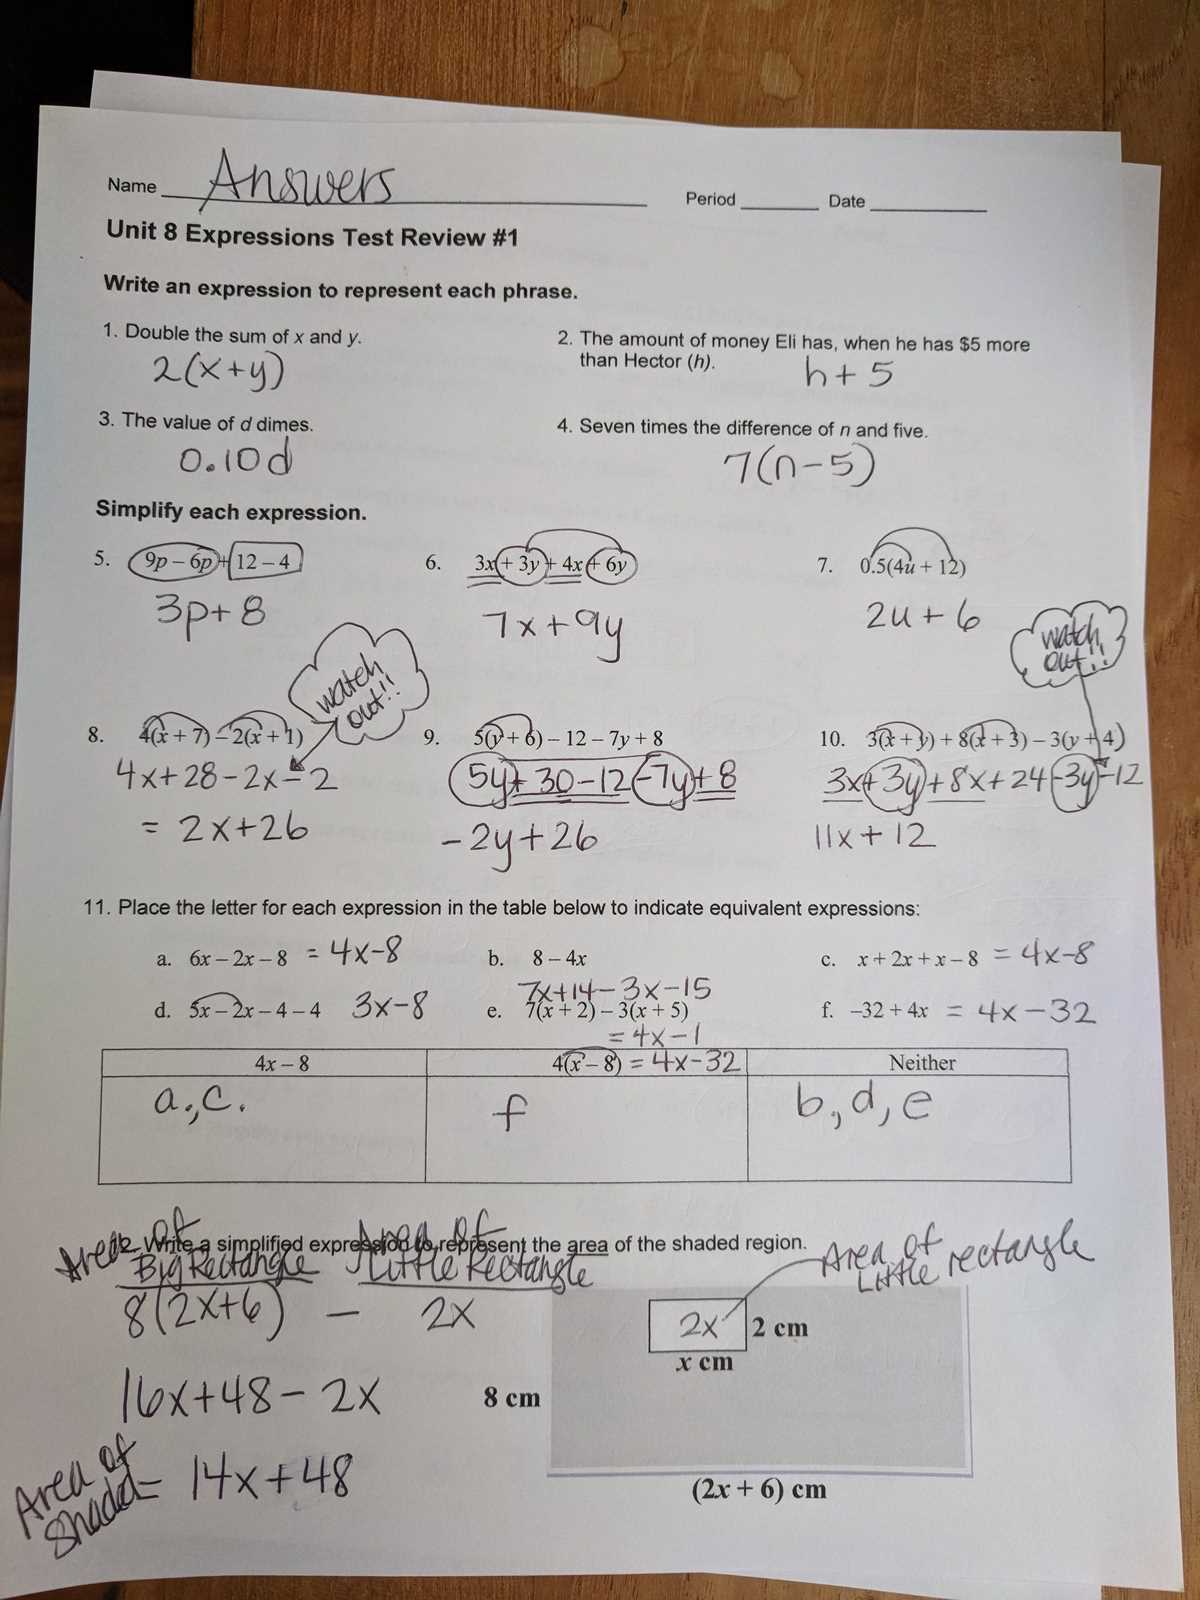 Name Answers Period Date
Unit 8 Expressions Test Review #1
Write an expression to represent each phrase.
1. Double the sum of x and y.
2(x+y)
2. The amount of money Eli has, when he has $5 more
than Hector (h).
h+5
3. The value of d dimes.
0.10d
4. Seven times the difference of n and five.
7(n-5)
Simplify each expression.
5. 9p – 6p + 12 – 4
3p+8
6. 3x + 3y + 4x + 6y
7x+9y
7. 0.5(4u + 12)
2u+6
watch
out!!
watch
out!!
8. 4(x + 7) – 2(x + 1)
4x+28-2x-2
= 2x+26
9. 5(y + 6) – 12 – 7y + 8
5y+30-12-7y+8
-2y+26
10. 3(x + y) + 8(x + 3) – 3(y + 4)
3x+3y+8x+24-3y-12
11x+12
11. Place the letter for each expression in the table below to indicate equivalent expressions:
a. 6x – 2x – 8 = 4x-8
b. 8 – 4x
c. x + 2x + x – 8 = 4x-8
d. 5x – 2x – 4 – 4 3x-8
7x+14-3x-15
e. 7(x + 2) – 3(x + 5)
= 4x-1
f. –32 + 4x = 4x-32
4x – 8
4(x – 8) = 4x-32
Neither
a., c.
f
b, d, e
12. Write a simplified expression to represent the area of the shaded region.
Area of
Big Rectangle
Area of
Little Rectangle
Area of
Little rectangle
8(2x+6) - 2x
2x
2 cm
x cm
16x+48-2x
8 cm
Area of
Shaded = 14x+48
(2x + 6) cm